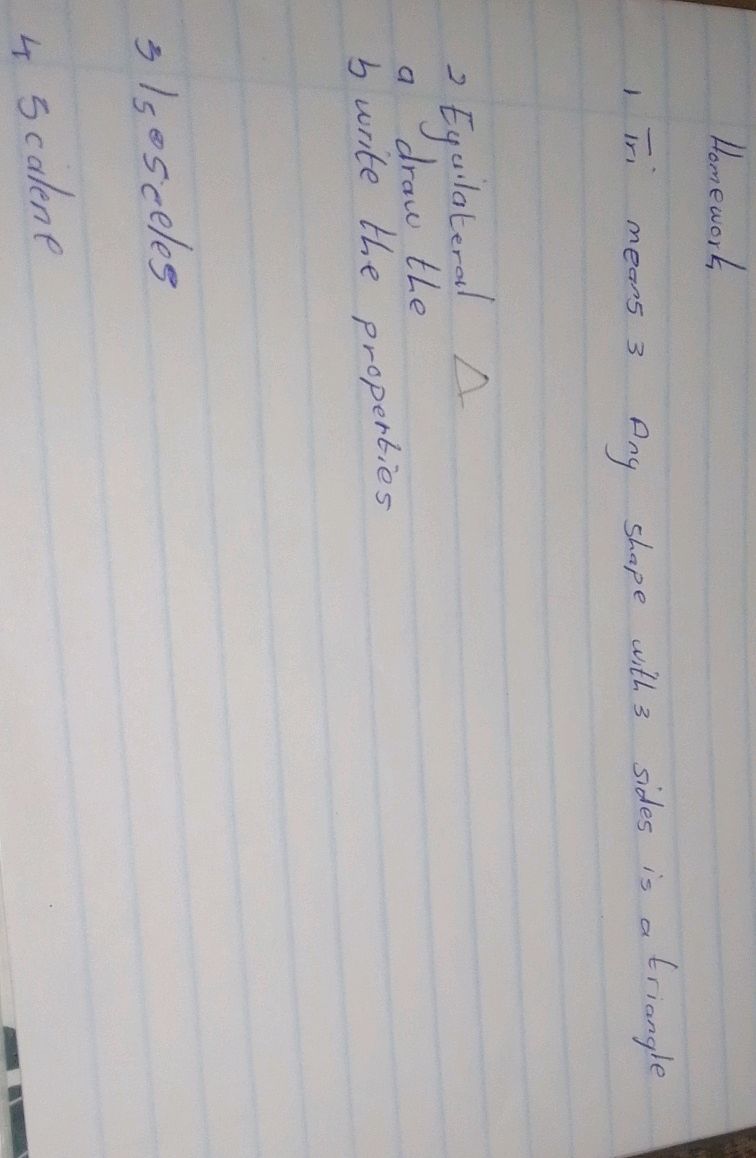 Homework
1 Tri means 3 Any shape with 3 sides is a triangle
2 Equilateral
a draw the
b write the properties
3 Isosceles
4 Scalene